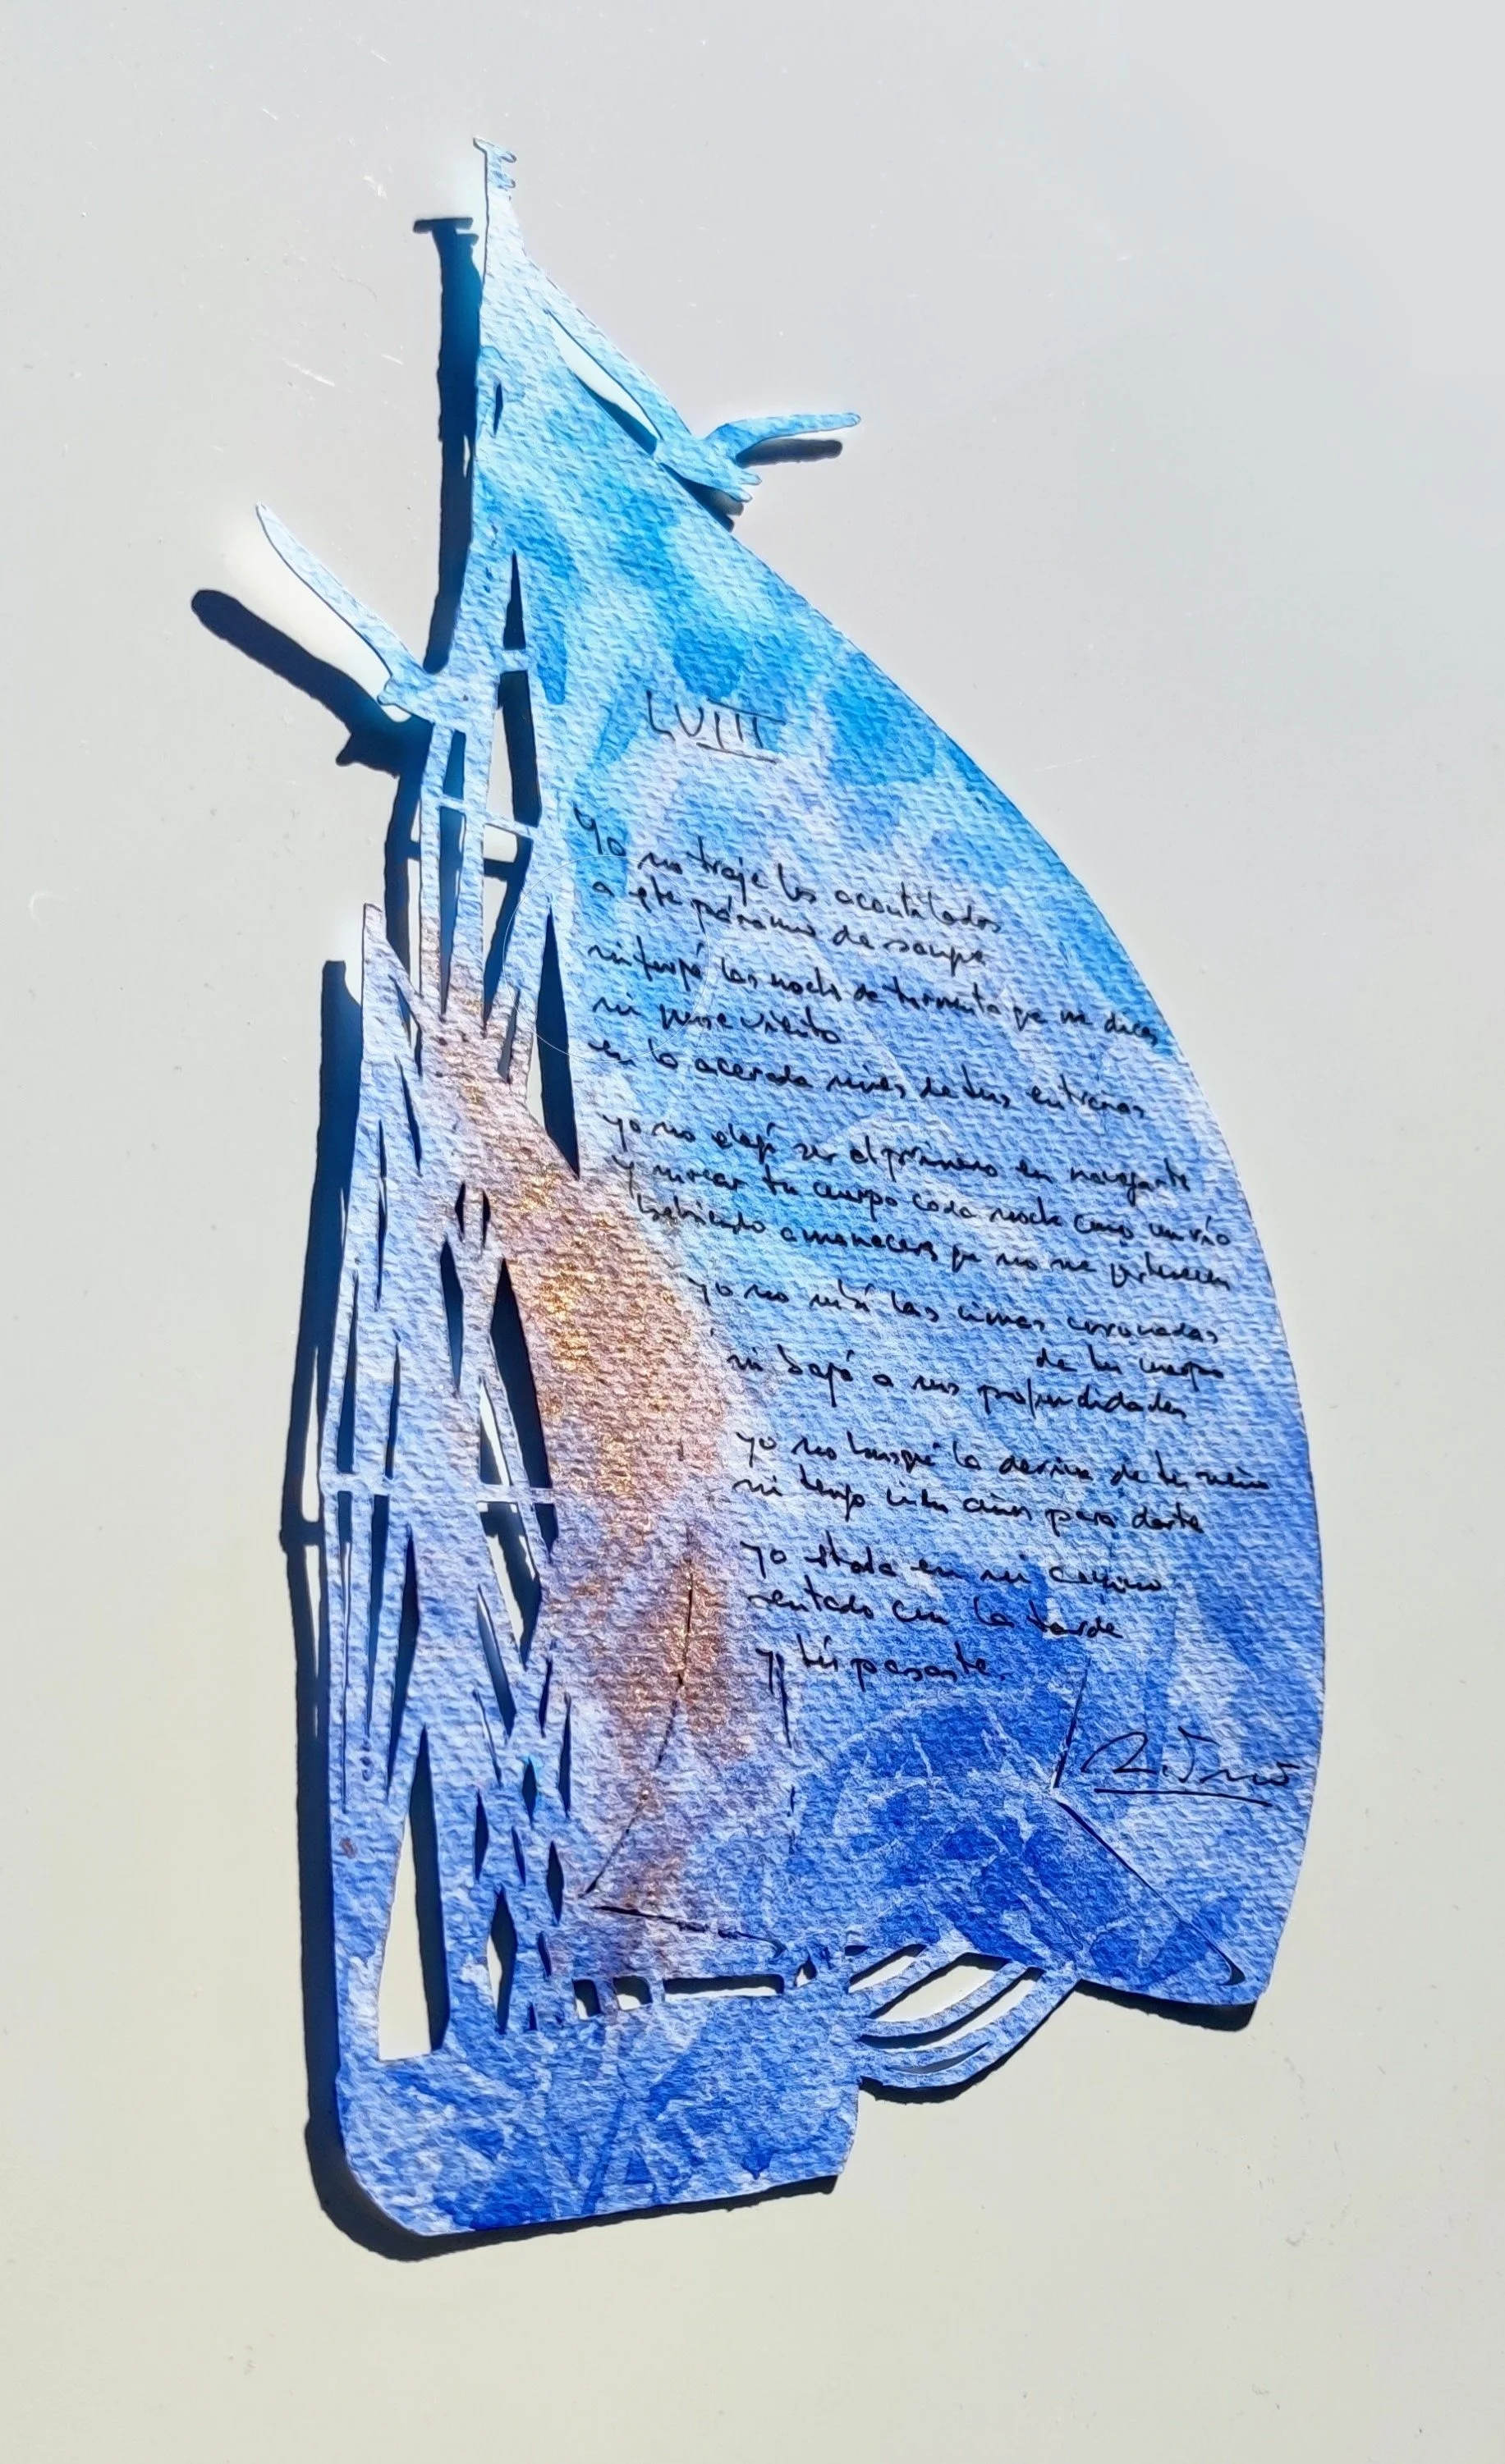 LVIII
Yo no traje los acantilados
a este páramo de sangre
ni forjé las noches de tormenta que me dices
ni puse viento
en la acerada nieve de tus entrañas
yo no elegí ser el primero en navegarte
y surcar tu cuerpo cada noche como un río
bebiendo amaneceres que no me pertenecen
yo no miré las cimas coronadas
de tu cuerpo
ni bajé a sus profundidades
yo no busqué la deriva de tu
ni tengo cien años para darte
yo estaba en mi camino
sentado con la tarde
y tú pasaste.